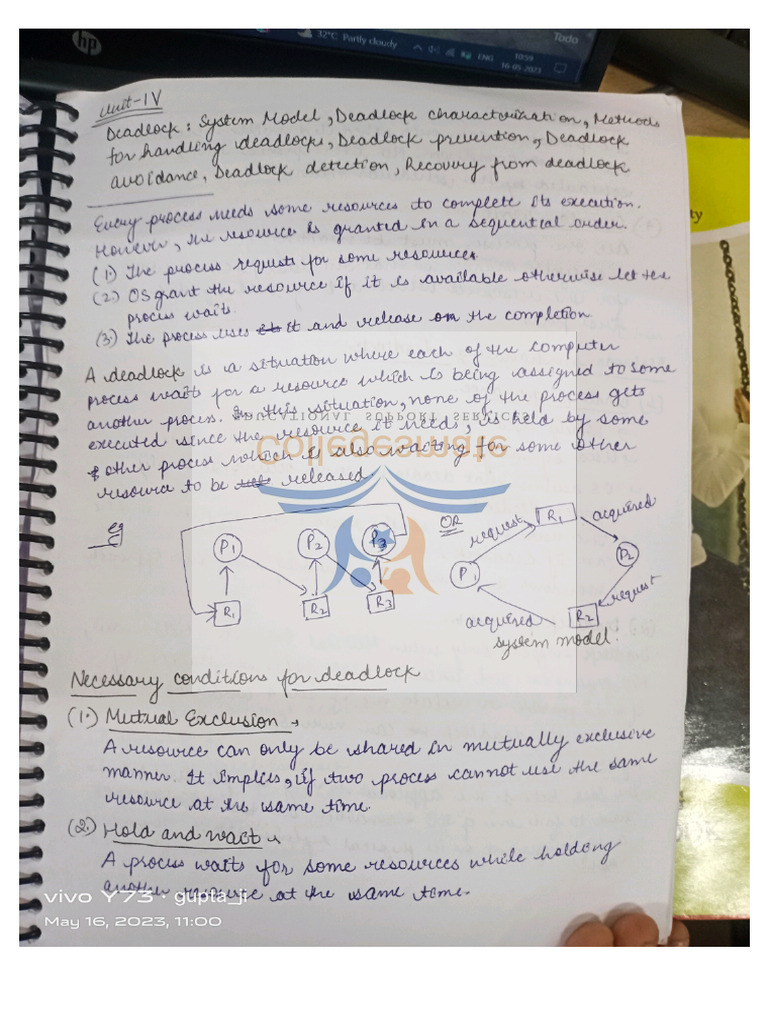 hp
32°C Partly cloudy
ENG
10:59
16-05-2023
Todo
Unit-IV
Deadlock: System Model, Deadlock characterization, Methods
for handling deadlocks, Deadlock prevention, Deadlock
avoidance, Deadlock detection, Recovery from deadlock
Every process needs some resources to complete its execution.
However, the resource is granted in a sequential order.
(1) The process requests for some resource.
(2) OS grant the resource if it is available otherwise let the
process waits.
(3) The process uses it and release on the completion
A deadlock is a situation where each of the computer
process waits for a resource which is being assigned to some
another process. In this situation, none of the process gets
executed since the resource it needs, is held by some
other process which is also waiting for some other
resource to be released.
EDUCATIONAL SUPPORT SERVICES
collegesmate
eg
P1 P2 P3
R1 R2 R3
OR
request R1 acquired
P1 P2
acquired R2 request
system model.
Necessary conditions for deadlock
(1.) Mutual Exclusion
A resource can only be shared in mutually exclusive
manner. It implies, if two process cannot use the same
resource at the same time.
(2.) Hold and wait
A process waits for some resources while holding
another resource at the same time.
vivo Y73 · gupta_ji
May 16, 2023, 11:00